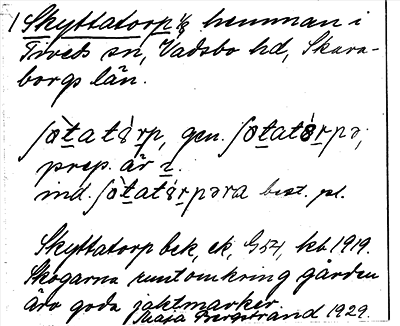 1 Skyttatorp ⅛ hemman i
Tiveds sn, Vadsbo hd, Skara-
borgs län.
ʃòtatórp, gen. ʃòtatórpə;
prep. är
ind. ʃòtatórpəra best. pl.
Skyttatorp bek, ek, G 54, kb 1919.
Skogarna runtomkring gården
äro goda jaktmarker.
Maja Bergstrand 1929.